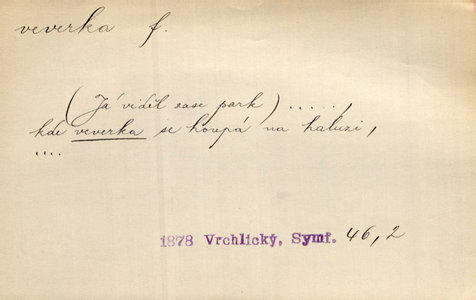 veverka f.
(Já viděl zase park) ....., 
kde veverka se houpá na haluzi,
....
1878 Vrchlický, Symf. 46,2